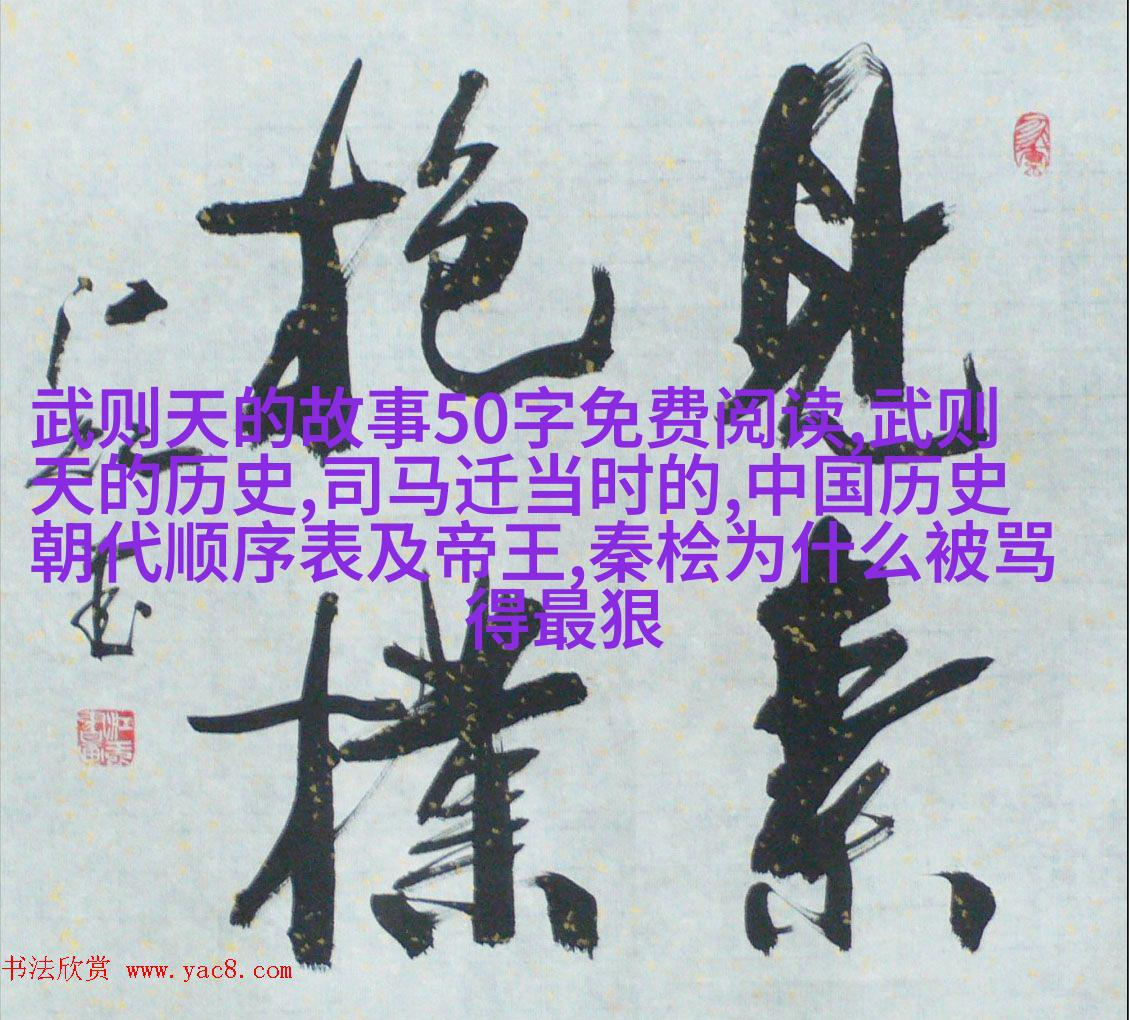 見素
抱樸
武则天的故事50字免费阅读,武则
天的历史,司马迁当时的,中国历史
朝代顺序表及帝王,秦桧为什么被骂
得最狠
书法欣赏 www.yac8.com